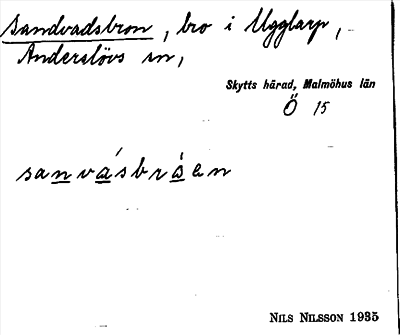 Sandvadsbron, bro i Ugglarp,
Anderslövs sn,
Skytts härad, Malmöhus län
Ö 15
sanvásbråen
NILS NILSSON 1935